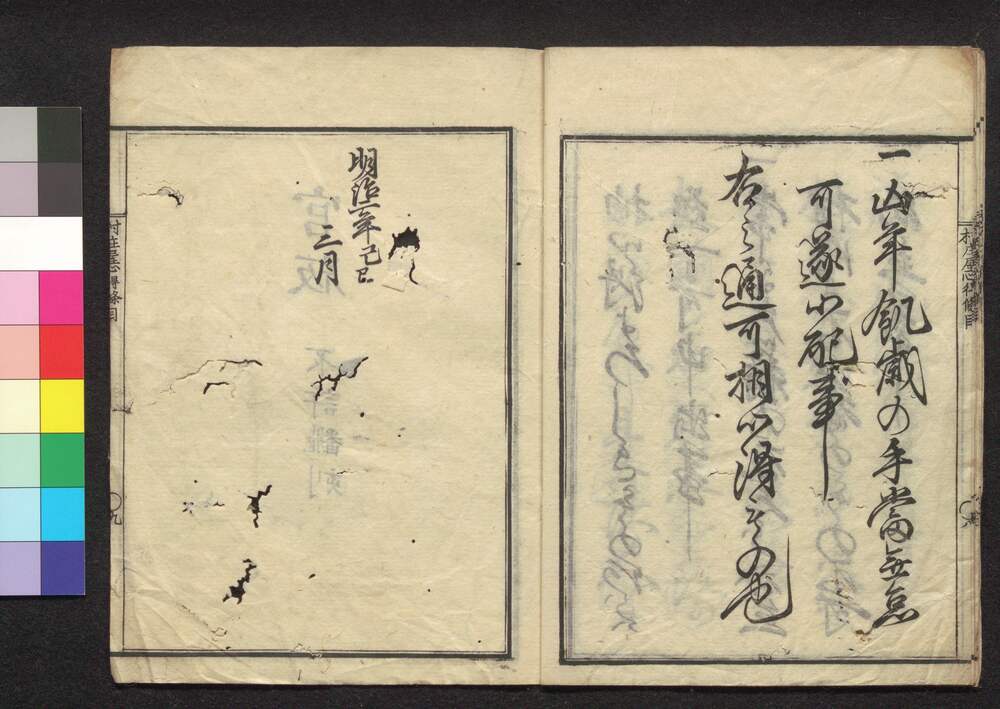 一凶年飢歳の手當無怠
可遂心配事
右之通可相心得もの也
村庄屋心得條目
明治二年己巳
三月
村庄屋心得條目
九